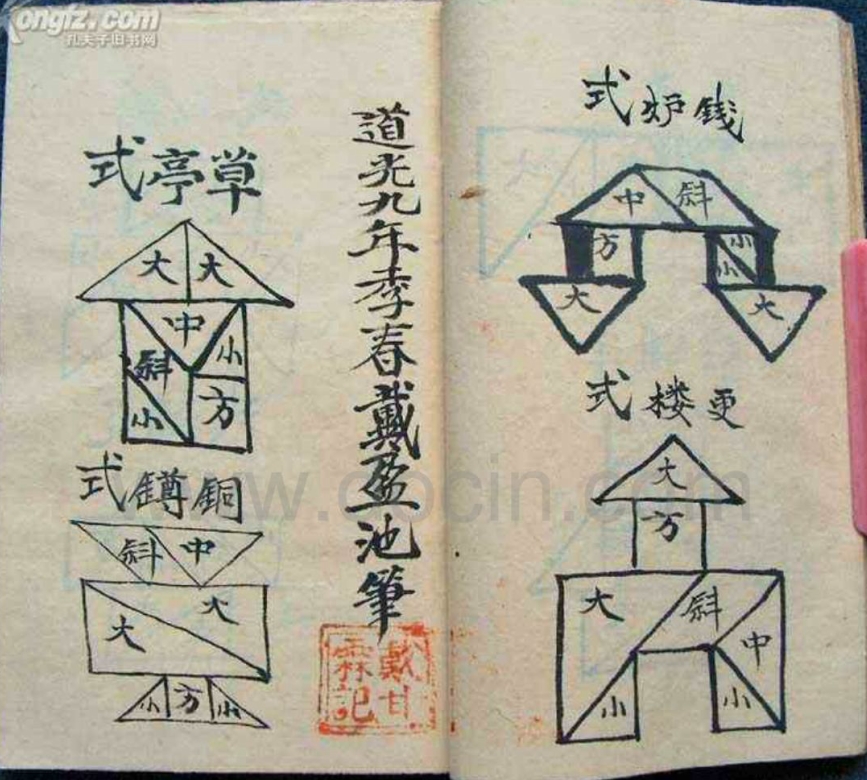 ongfz.com
孔夫子旧书网
www.docin.com
式炉钱
中 斜
方 小
小
大 大
式楼更
大
方
大 斜
中
小 小
道光九年季春戴盈池筆
戴甘霖記
式亭草
大 大
中
斜 小
小 方
式鐏銅
斜 中
大 大
小 方 小